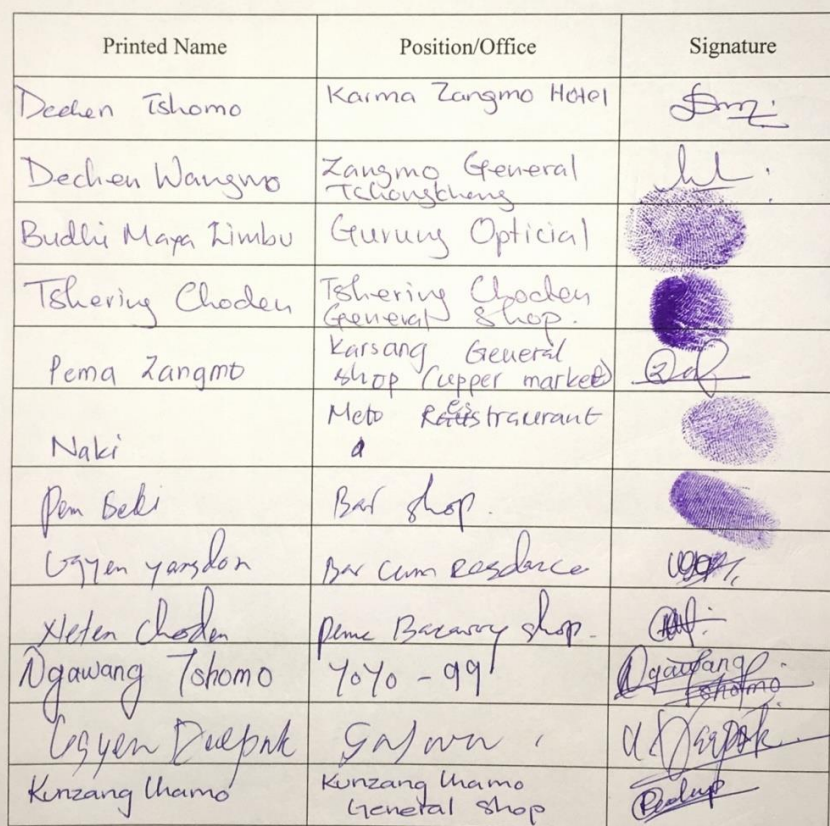 Printed Name Position/Office Signature
Dechen Tshomo Karma Zangmo Hotel
Dechen Wangmo Zangmo General
Tshongkhang
Budhi Maya Limbu Gurung Opticial
Tshering Choden Tshering Choden
General Shop.
Pema Zangmo Karsang General
shop (upper market)
Naki Meto
Pem Beki Bar shop.
Ugyen yangdon Bar cum
choden shop.
Ngawang Tshomo YoYo - 99 Ngawang
Tshomo
Ugyen Deepak U. Deepak
Kunzang Lhamo Kunzang Lhamo
General shop